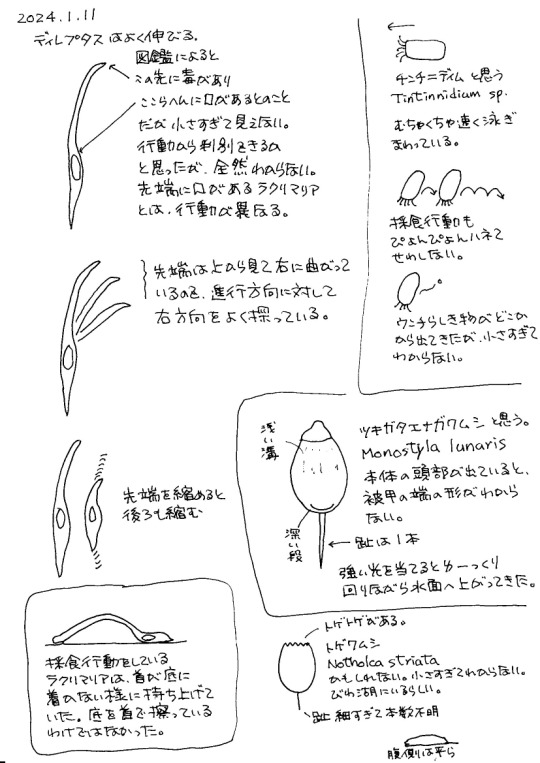 2024.1.11
ディレプタスはよく伸びる。
図鑑によると
この先に毒があり
ここらへんに口があるとのこと
だが小さすぎて見えない。
行動から判別できるの
と思ったが、全然わからない。
先端に口があるラクリマリア
とは、行動が異なる。
先端は上から見て右に曲がって
いるので、進行方向に対して
右方向をよく探っている。
先端を縮めると
後ろも縮む
採食行動をしている
ラクリマリアは、首が底に
着かない様に持ち上げて
いた。底を首で擦っている
わけではなかった。
チンチニディムと思う
Tintinnidium sp.
むちゃくちゃ速く泳ぎ
まわっている。
採食行動も
ぴょんぴょんハネて
せわしない。
ウンチらしき物がどこか
から出てきたが、小さすぎて
わからない。
浅い溝
深い段
ツキガタエナガワムシと思う。
Monostyla lunaris
本体の頭部が出ていると、
被甲の端の形がわから
ない。
趾は1本
強い光を当てるとゆーっくり
回りながら水面へ上がってきた。
トゲトゲがある。
トゲワムシ
Notholca striata
かもしれない。小さすぎてわからない。
びわ湖にいるらしい。
趾 細すぎて本数不明
腹側は平ら